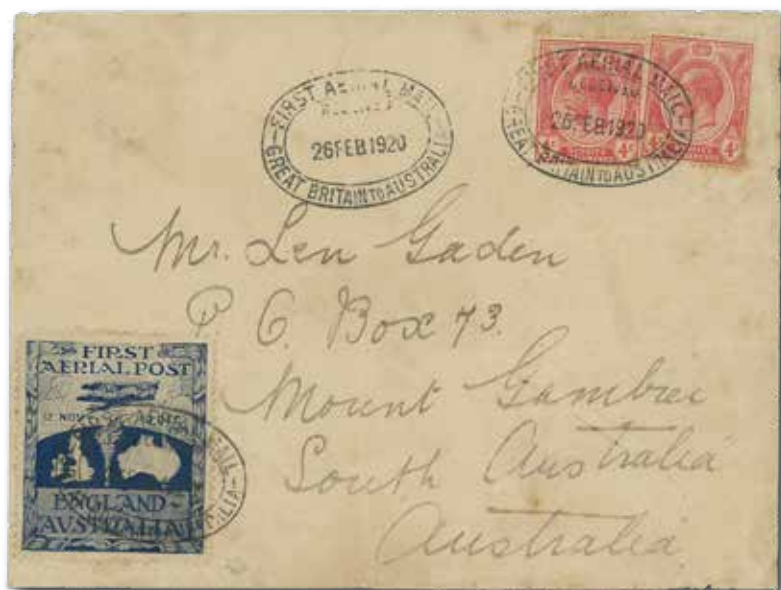 FIRST AERIAL MAIL
RECEIVED
26FEB1920
GREAT BRITAIN TO AUSTRALIA
AERIAL MAIL
RECEIVED
26FEB1920
BRITAIN TO AUSTRALIA
4c
4c
Mr. Len Gaden
P. O. Box 73.
Mount Gambier
South Australia
Australia
FIRST
AERIAL POST
12 NOV
ENGLAND-
AUSTRALIA